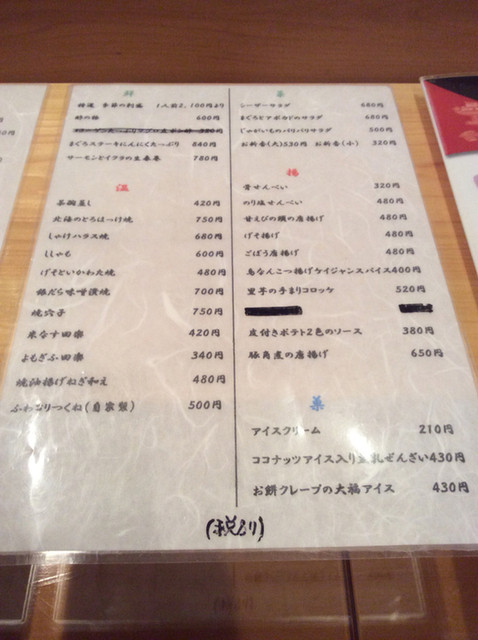 鮮
特選 季節の刺盛 1人前2,100円より
600円
まぐろステーキにんにくたっぷり 840円
サーモンとイクラの生春巻 780円
温
茶碗蒸し 420円
北海のとろほっけ焼 750円
しゃけハラス焼 680円
ししゃも 600円
げそといかわた焼 480円
銀だら味噌漬焼 700円
焼穴子 750円
米なす田楽 420円
よもぎふ田楽 340円
焼油揚げねぎ和え 480円
ふわふりつくね(自家製) 500円
菜
シーザーサラダ 680円
まぐろとアボカドのサラダ 680円
じゃがいものパリパリサラダ 500円
お新香(大)530円 お新香(小) 320円
揚
骨せんべい 320円
のり塩せんべい 480円
甘えびの頭の唐揚げ 480円
げそ揚げ 480円
ごぼう唐揚げ 480円
鳥なんこつ揚げケイジャンスパイス400円
里芋の手まりコロッケ 520円
皮付きポテト2色のソース 380円
豚角煮の唐揚げ 650円
菓
アイスクリーム 210円
ココナッツアイス入り豆乳ぜんざい430円
お餅クレープの大福アイス 430円